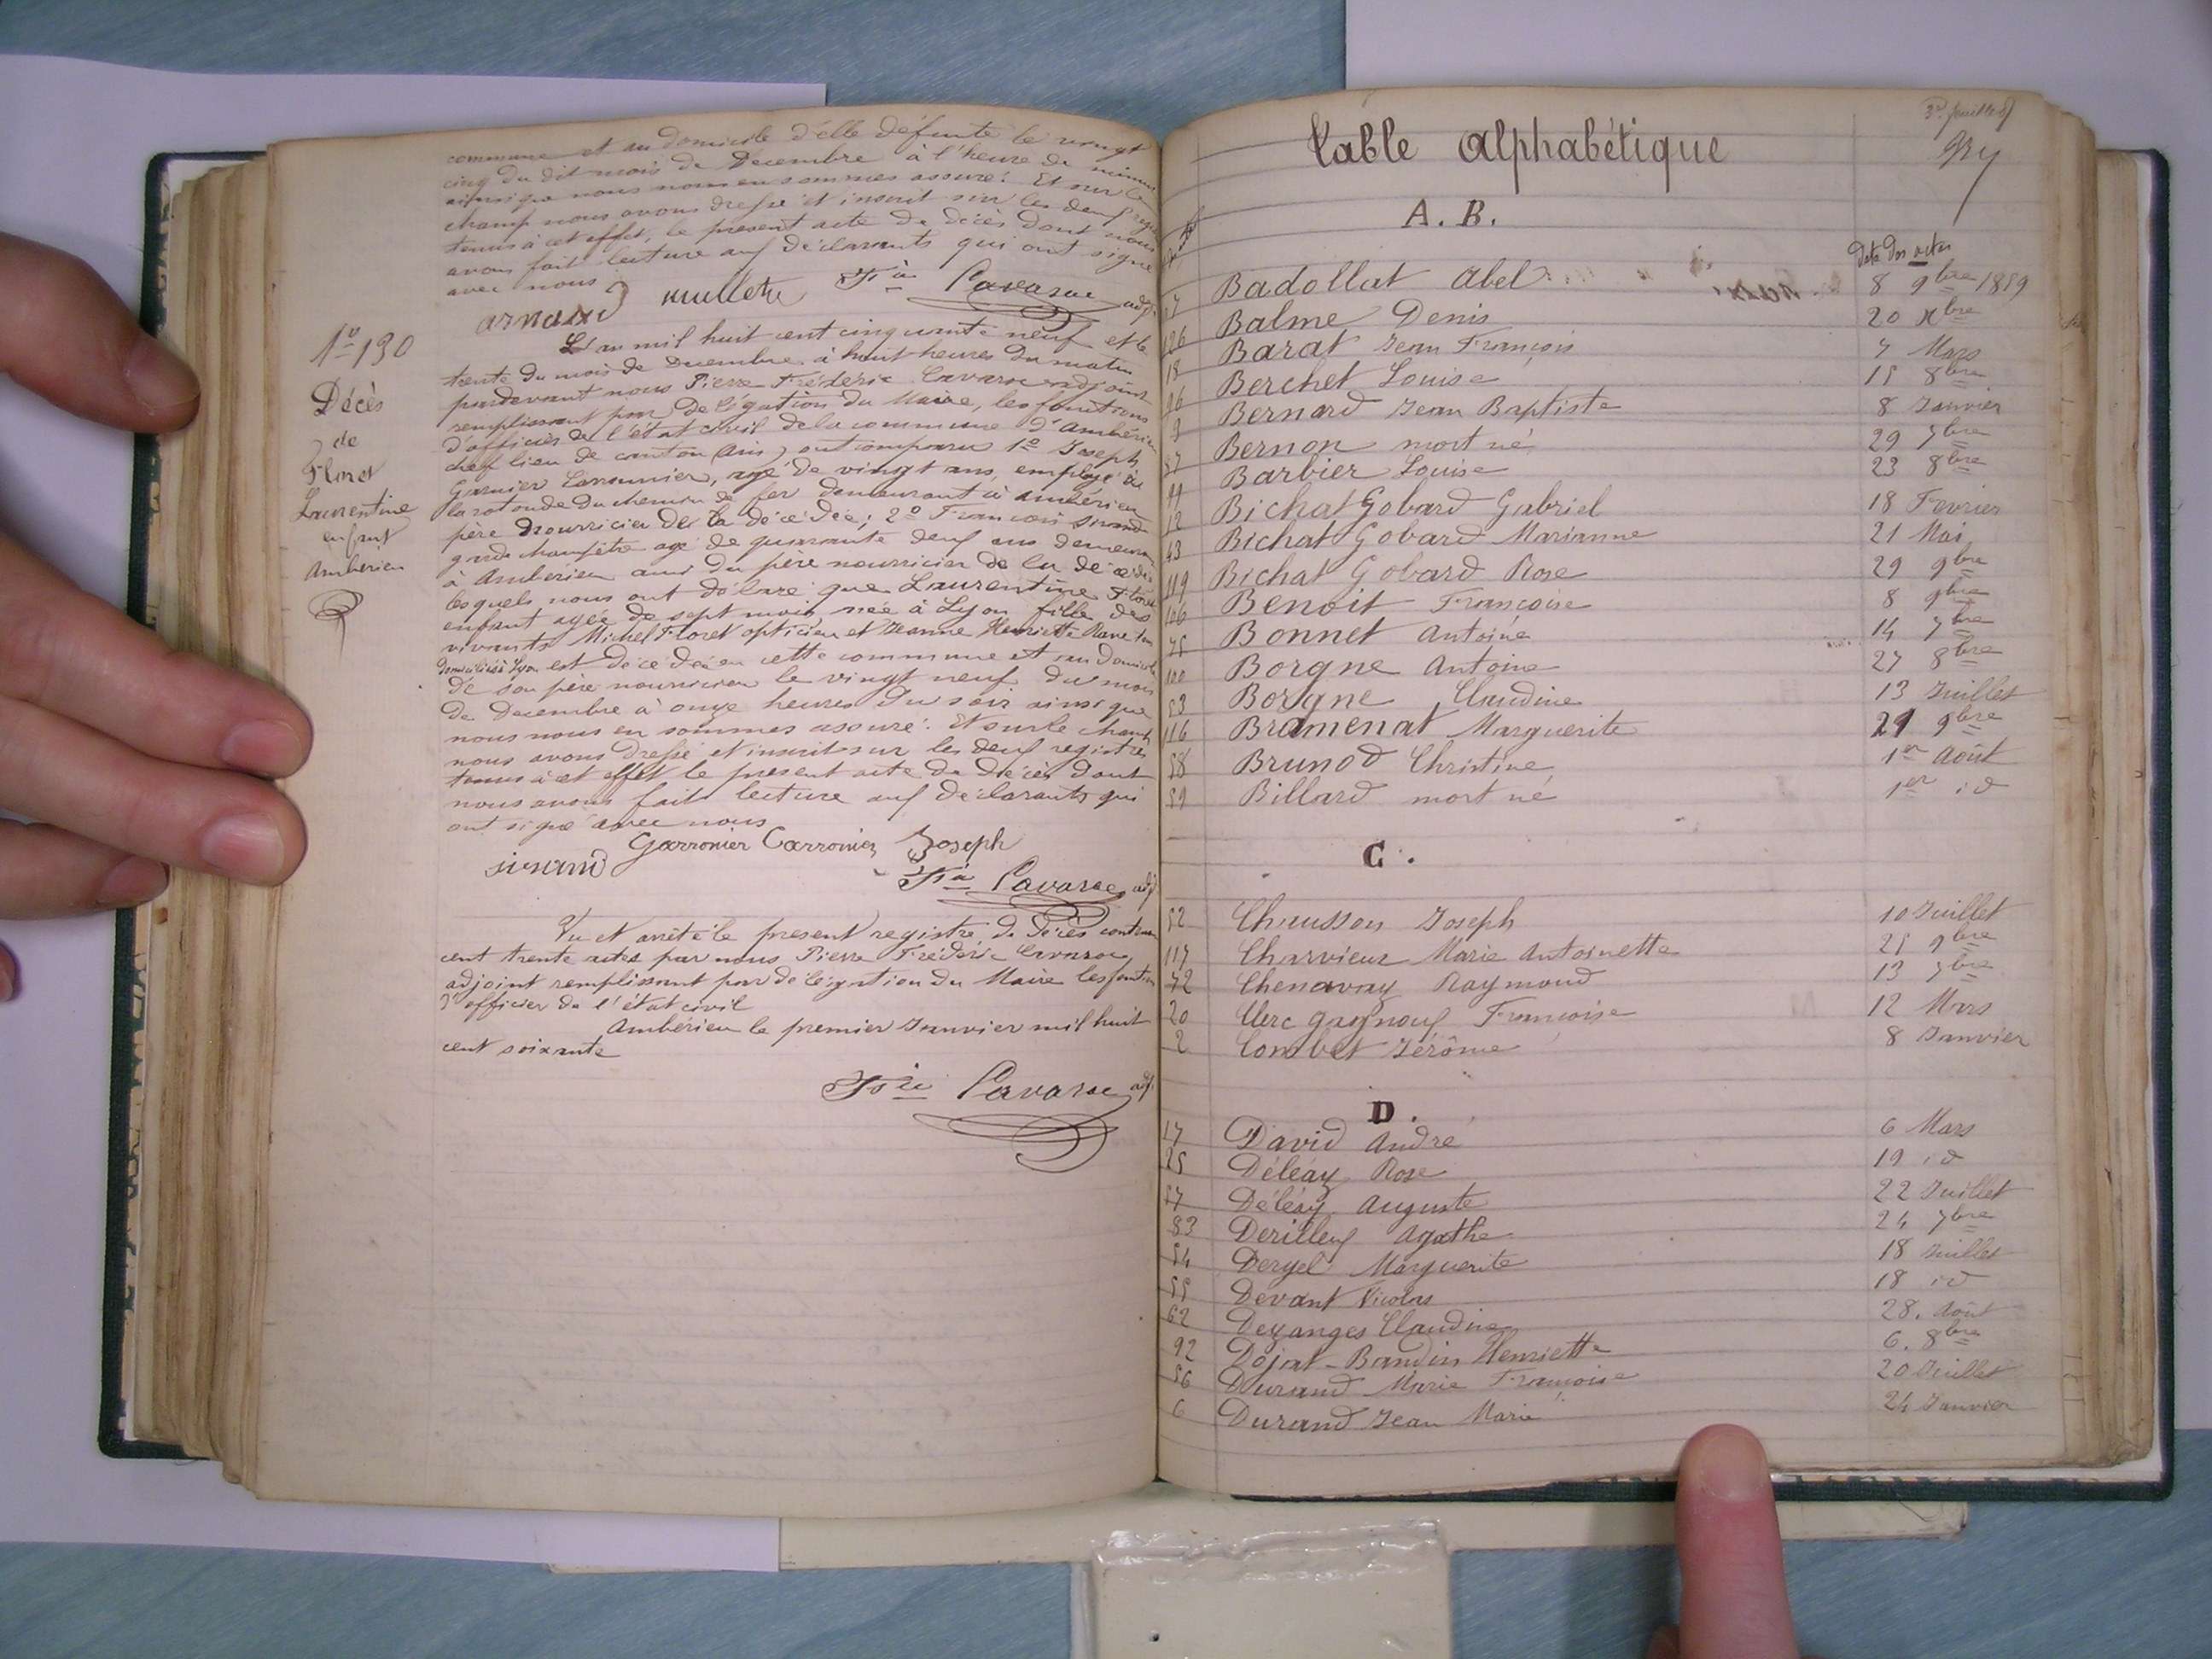 commune et au domicile d'elle défunte le vingt
cinq du dit mois de Décembre à l'heure de minuit
ainsi que nous nous en sommes assuré. Et sur le
champ nous avons dressé et inscrit sur les deux
tenus à cet effet, le présent acte de décès dont nous
avons fait lecture aux déclarants qui ont signé
avec nous
arnaud mullet Cavaroc adj.
N° 130
Décès
de
Floret
Laurentine
enfant
Ambérieu
L'an mil huit cent cinquante neuf et le
trente du mois de Décembre à huit heures du matin
pardevant nous Pierre Frédéric Cavaroc adjoint
remplissant par délégation du Maire, les fonctions
d'officier de l'état civil de la commune d'Ambérieu
chef lieu de canton (Ain) ont comparu 1° Joseph
agé de vingt ans, employé à
la rotonde du chemin de fer demeurant à Ambérieu
père nourricier de la décédée; 2° François Sirand
garde champêtre agé de quarante deux ans demeurant
à Ambérieu ami du père nourricier de la décédée
lesquels nous ont déclaré que Laurentine Floret
enfant agée de sept mois née à Lyon fille des
vivants Michel Floret opticien et Jeanne Henriette
domiciliés à Lyon est décédée en cette commune et au domicile
de son père nourricier le vingt neuf du mois
de Decembre à onze heures du soir ainsi que
nous nous en sommes assuré. Et sur le champ
nous avons dressé et inscrit sur les deux registres
tenus à cet effet le présent acte de décès dont
nous avons fait lecture aux déclarants qui
ont signé avec nous
Joseph
sirand
Cavaroc adj
Vu et arrêté le présent registre de Décès contenant
cent trente actes par nous Pierre Frédéric Cavaroc
adjoint remplissant par délégation du Maire les fonctions
d'officier de l'état civil
Ambérieu le premier Janvier mil huit
cent soixante
Cavaroc adj.
Table Alphabétique
A. B.
Date des actes
Badollat Abel 8 9bre 1859
126 Balme Denis 20 Xbre
18 Barat Jean François 7 Mars
96 Berchet Louise 15 8bre
3 Bernard Jean Baptiste 8 Janvier
87 Bernon mort né 29 7bre
Barbier Louise 23 8bre
12 Bichat Gobard Gabriel 18 Fevrier
43 Bichat Gobard Marianne 21 Mai
119 Bichat Gobard Rose 29 9bre
106 Benoit Françoise 8 9bre
75 Bonnet Antoine 14 7bre
100 Borgne Antoine 27 8bre
53 Borgne Claudine 13 Juillet
116 Bramenat Marguerite 21 9bre
58 Brunod Christine 1er Août
59 Billard mort né 1er id
C.
52 Chausson Joseph 10 Juillet
117 Charvieux Marie Antoinette 25 9bre
72 Chenavay Raymond 13 7bre
20 Clerc gagnoux Françoise 12 Mars
2 Combet Jérôme 8 Janvier
D.
17 David André 6 Mars
25 Déléaz Rose 19 id
57 Déléaz Auguste 22 Juillet
83 Derilleux Agathe 24 7bre
54 Deryel Marguerite 18 Juillet
55 Devant Nicolas 18 id
62 Dezanges Claudine 28. Août
92 Dojat-Baudin Henriette 6. 8bre
56 Durand Marie Françoise 20 Juillet
6 Durand Jean Marie 24 Janvier